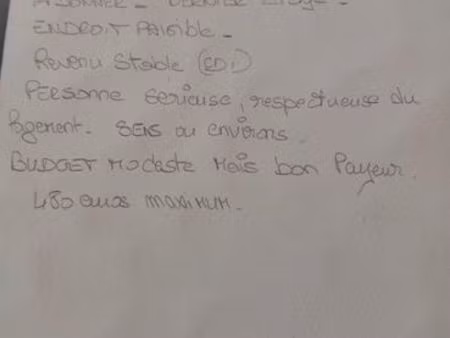 ENDROIT PAISIBLE -
Revenu Stable (CDI)
PERSONNE SERIEUSE, respectueuse du
logement - SENS ou environs
BUDGET MODESTE MAIS bon Payeur.
480 euros MAXIMUM -